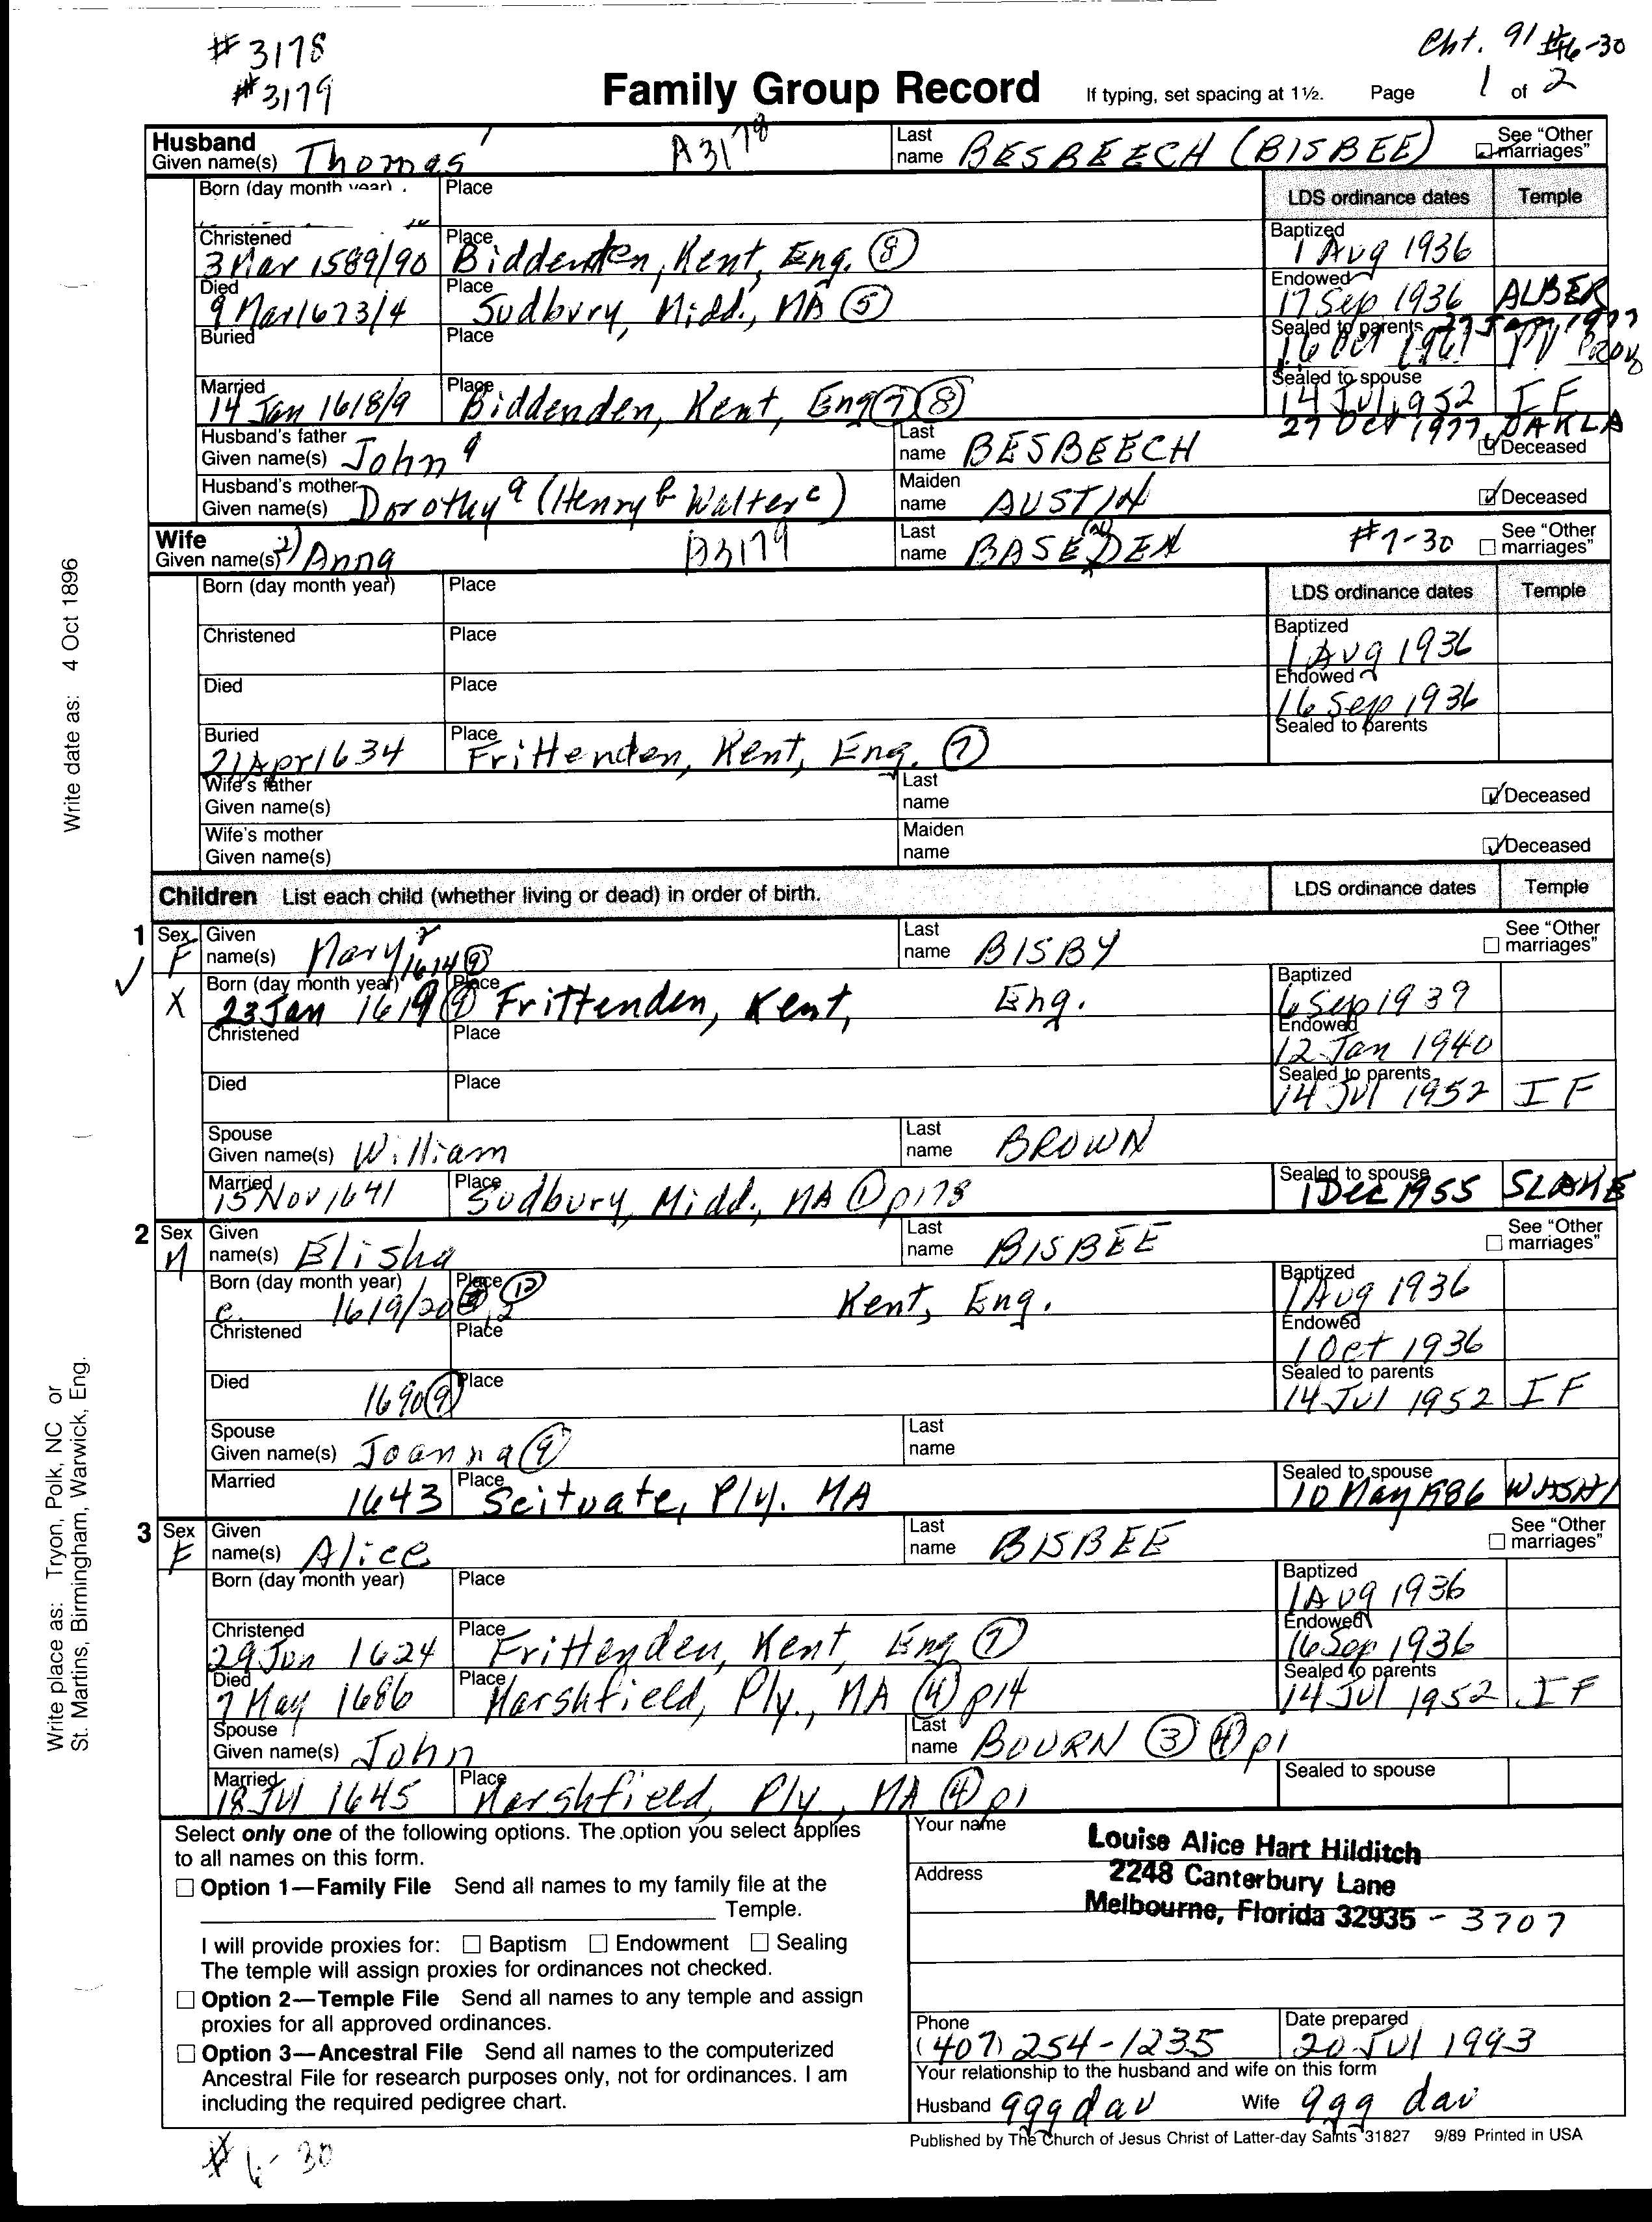 # 3178
# 3179
Cht. 91 #6-30
Family Group Record
If typing, set spacing at 1½. Page 1 of 2
Husband
Given name(s) Thomas
A3178
Last name BESBEECH (BISBEE)
See "Other marriages"
Born (day month year) Place
LDS ordinance dates Temple
Christened 3 Mar 1589/90 Place Biddenden, Kent, Eng. (8)
Baptized 1 Aug 1936
Died 9 Mar 1673/4 Place Sudbury, Midd., MA (5)
Endowed 17 Sep 1936 ALBER
Buried Place
Sealed to parents 16 Oct 1967
Married 14 Jan 1618/9 Place Biddenden, Kent, Eng (7) (8)
Sealed to spouse 14 Jul 1952 IF
27 Oct 1977 OAKLA
Husband's father Given name(s) John Last name BESBEECH Deceased
Husband's mother Given name(s) Dorothy (Henry Walter) Maiden name AUSTIN Deceased
Wife
Given name(s) Anna
A3179
Last name BASEDEN
#7-30
See "Other marriages"
Born (day month year) Place
LDS ordinance dates Temple
Christened Place
Baptized 1 Aug 1936
Died Place
Endowed 16 Sep 1936
Buried 21 Apr 1634 Place Frittenden, Kent, Eng. (7)
Sealed to parents
Wife's father Given name(s) Last name Deceased
Wife's mother Given name(s) Maiden name Deceased
Children List each child (whether living or dead) in order of birth.
LDS ordinance dates Temple
1 Sex F Given name(s) Mary Last name BISBY See "Other marriages"
1614 (9)
X Born (day month year) 23 Jan 1619 (9) Place Frittenden, Kent, Eng.
Baptized 6 Sep 1939
Christened Place
Endowed 12 Jan 1940
Died Place
Sealed to parents 14 Jul 1952 IF
Spouse Given name(s) William Last name BROWN
Married 15 Nov 1641 Place Sudbury, Midd., MA (1) p178
Sealed to spouse 1 Dec 1955 SLAKE
2 Sex M Given name(s) Elisha Last name BISBEE See "Other marriages"
Born (day month year) c. 1619/20 Place (12) Kent, Eng.
Baptized 1 Aug 1936
Christened Place
Endowed 1 Oct 1936
Died 1690 (9) Place
Sealed to parents 14 Jul 1952 IF
Spouse Given name(s) Joanna (9) Last name
Married 1643 Place Scituate, Ply. MA
Sealed to spouse 10 May 1986 WASHI
3 Sex F Given name(s) Alice Last name BISBEE See "Other marriages"
Born (day month year) Place
Baptized 1 Aug 1936
Christened 29 Jun 1624 Place Frittenden, Kent, Eng (7)
Endowed 16 Sep 1936
Died 7 May 1686 Place Marshfield, Ply., MA (4) p14
Sealed to parents 14 Jul 1952 IF
Spouse Given name(s) John Last name BOURN (3) (4) p1
Married 18 Jul 1645 Place Marshfield, Ply, MA (4) p1
Sealed to spouse
Select only one of the following options. The option you select applies
to all names on this form.
Option 1—Family File Send all names to my family file at the
Temple.
I will provide proxies for: Baptism Endowment Sealing
The temple will assign proxies for ordinances not checked.
Option 2—Temple File Send all names to any temple and assign
proxies for all approved ordinances.
Option 3—Ancestral File Send all names to the computerized
Ancestral File for research purposes only, not for ordinances. I am
including the required pedigree chart.
Your name Louise Alice Hart Hilditch
Address 2248 Canterbury Lane
Melbourne, Florida 32935 - 3707
Phone (407) 254-1235 Date prepared 20 Jul 1993
Your relationship to the husband and wife on this form
Husband ggg dau Wife ggg dau
Published by The Church of Jesus Christ of Latter-day Saints 31827 9/89 Printed in USA
# 6-30
Write date as: 4 Oct 1896
Write place as: Tryon, Polk, NC or
St. Martins, Birmingham, Warwick, Eng.